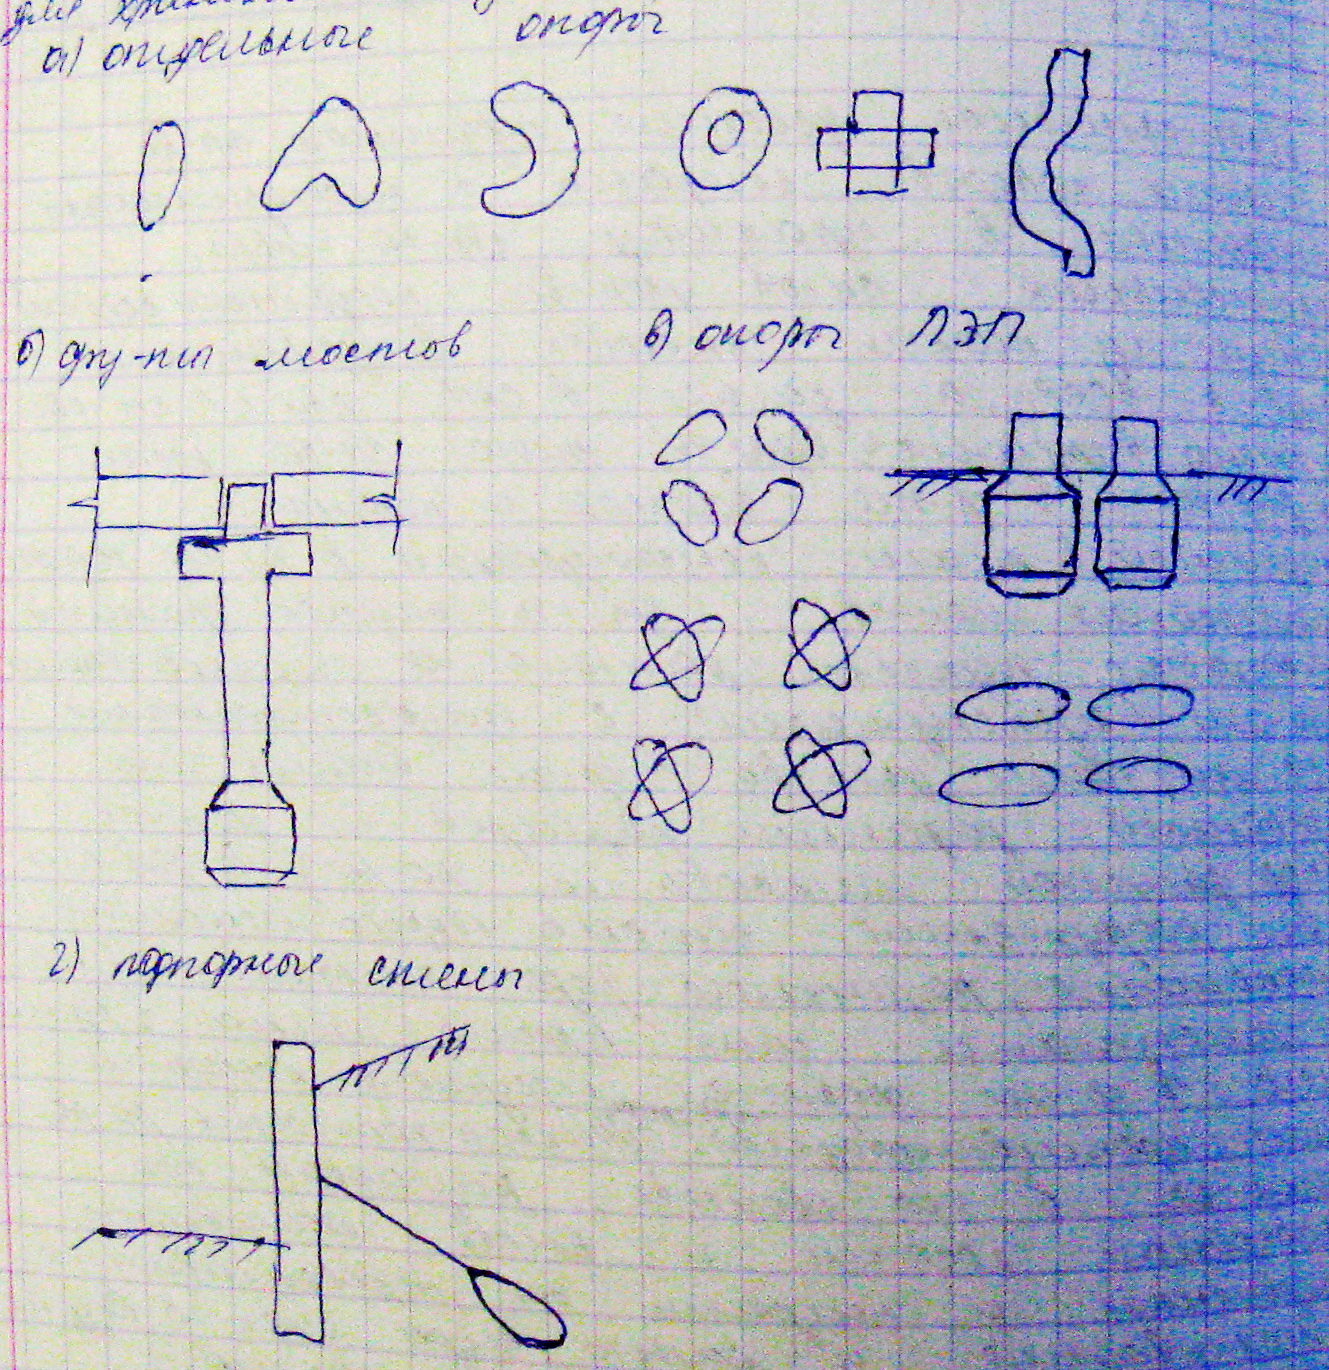 для
а) отдельные опоры
б) фу-ты мостов
в) опоры ЛЭП
г) подпорные стены